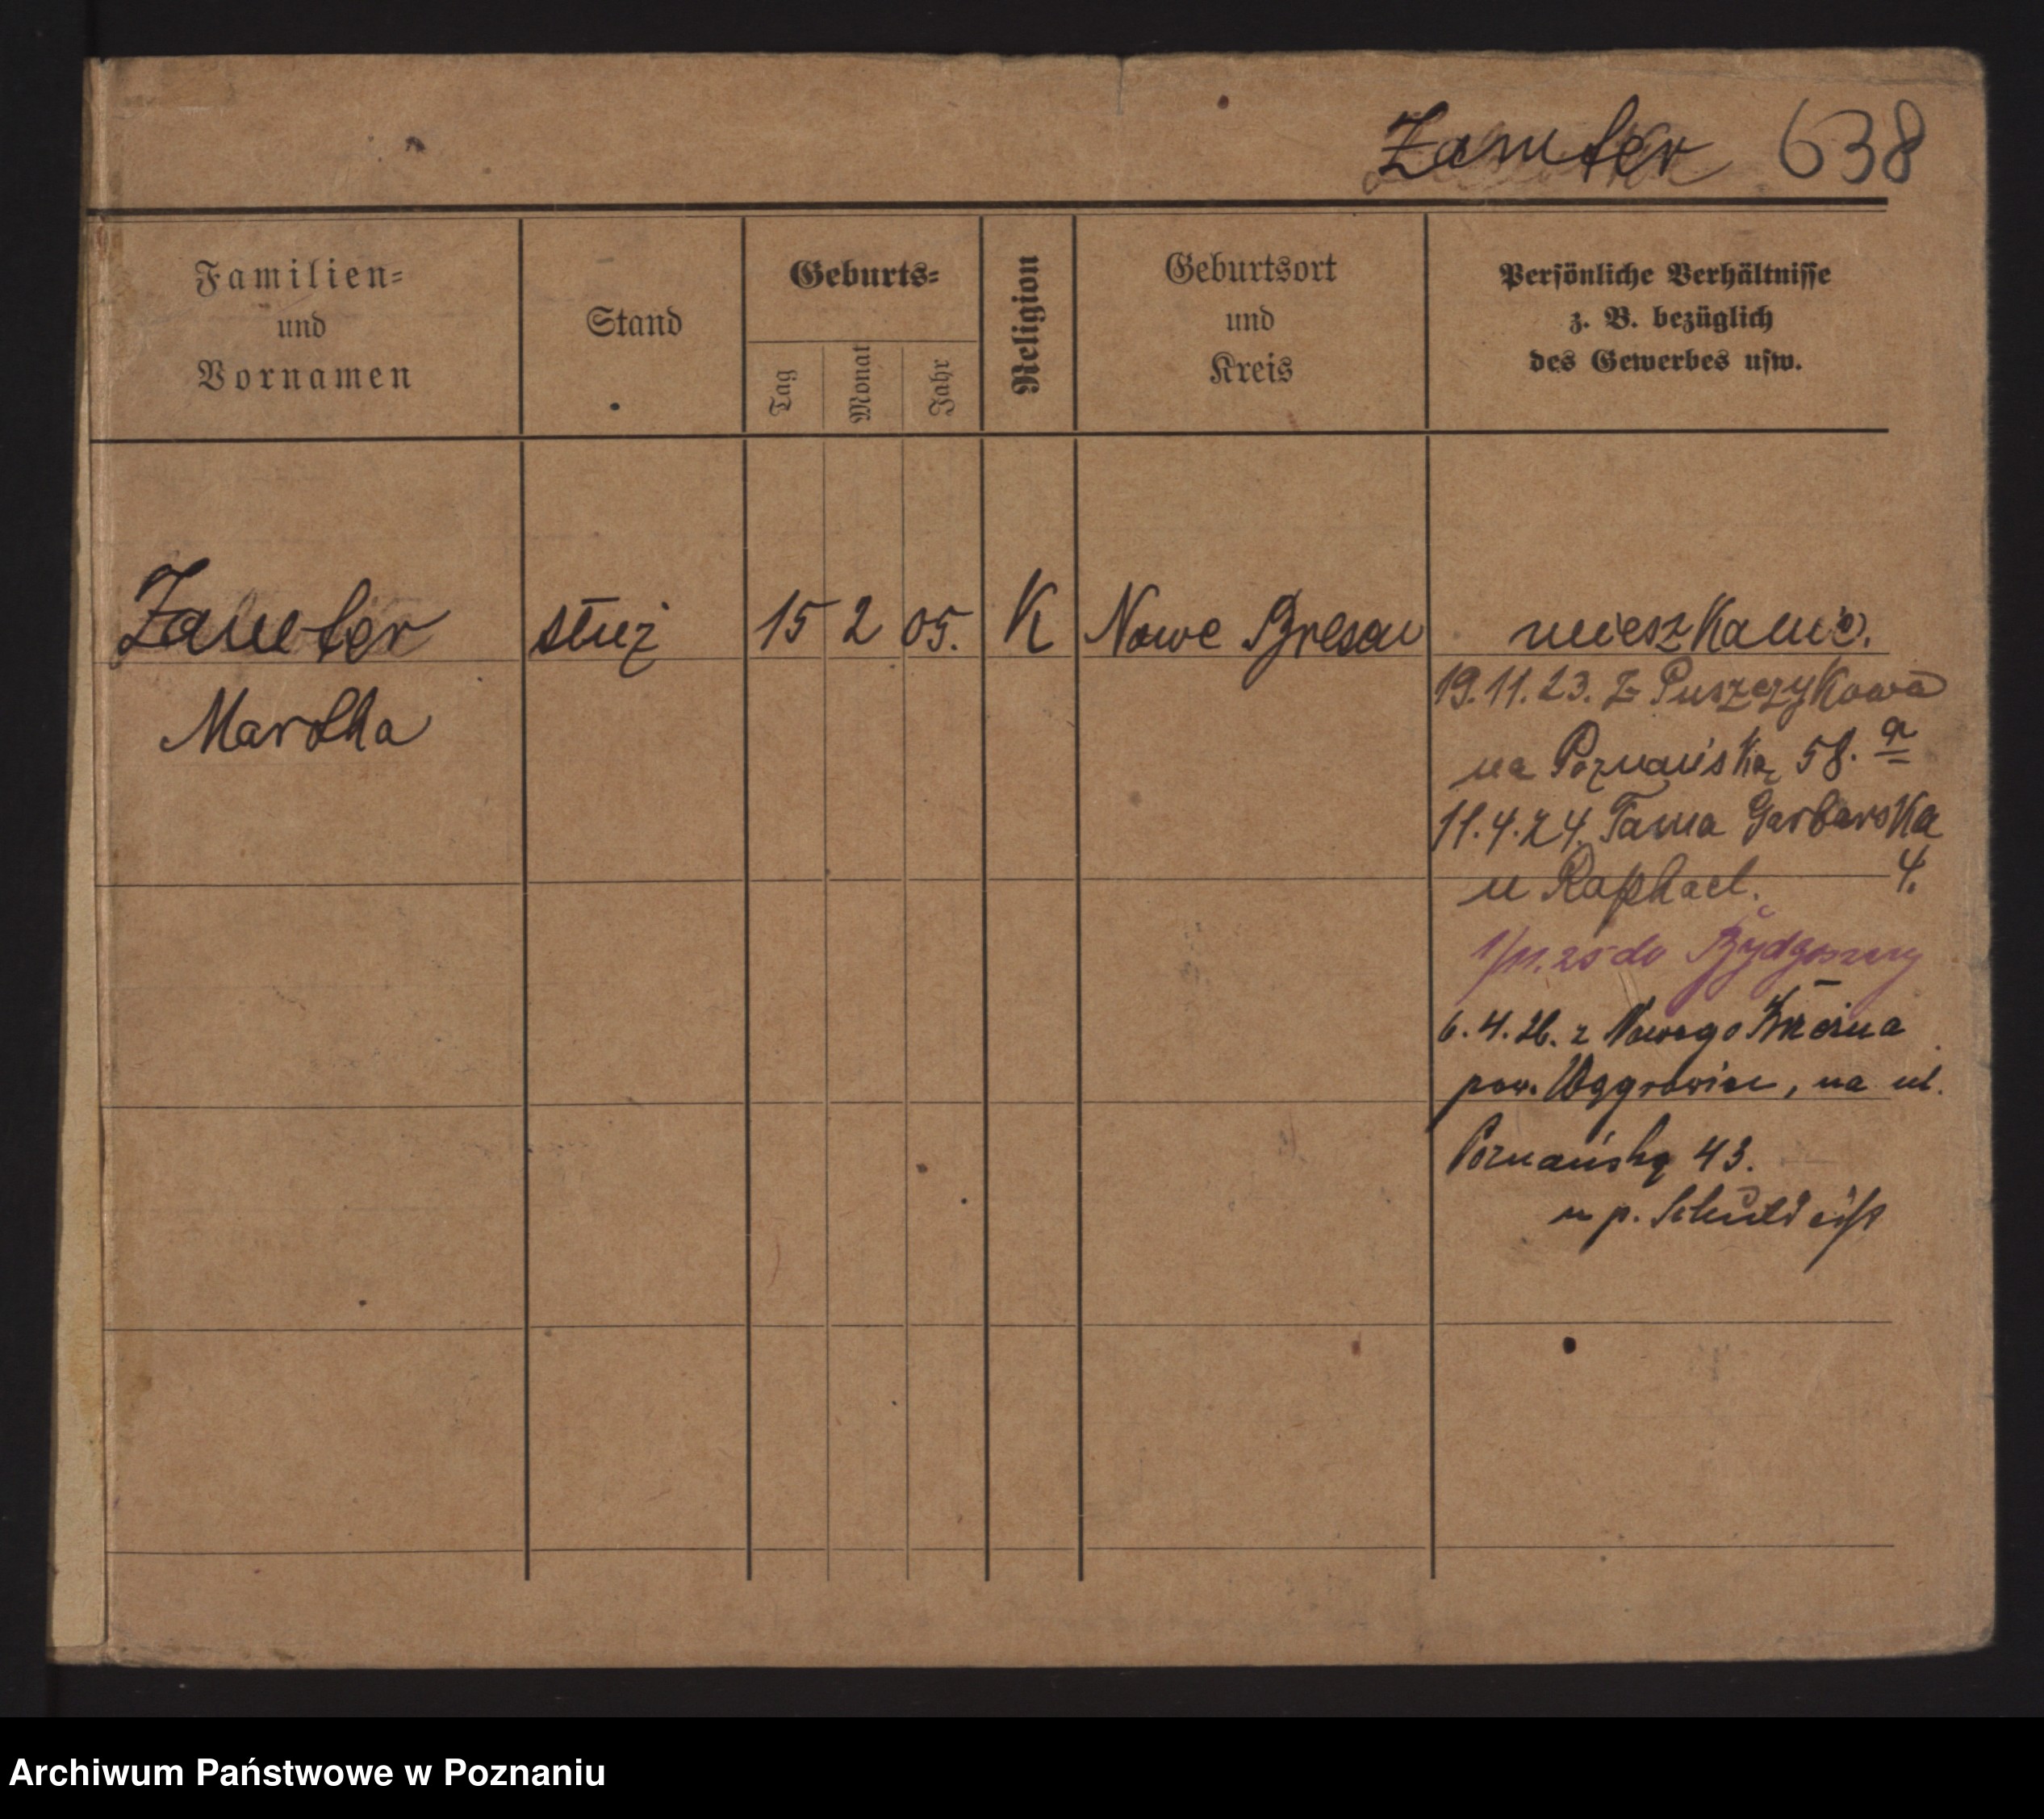 Zamter 638
Familien=
und
Vornamen
Stand
Geburts=
Tag
Monat
Jahr
Religion
Geburtsort
und
Kreis
Persönliche Verhältnisse
z. B. bezüglich
des Gewerbes usw.
Zamter służ 15 2 05. K Nowe mieszkanie.
Martha
19.11.23. z Puszczykowa
na Poznańską 58. a
11.4.24. Tama Garbarska
u Raphael. 4.
1/11.25 do Bydgoszczy
6.4.26. z Nowego
pow. Wągrowiec, na ul.
Poznańską 43.
u p.
Archiwum Państwowe w Poznaniu